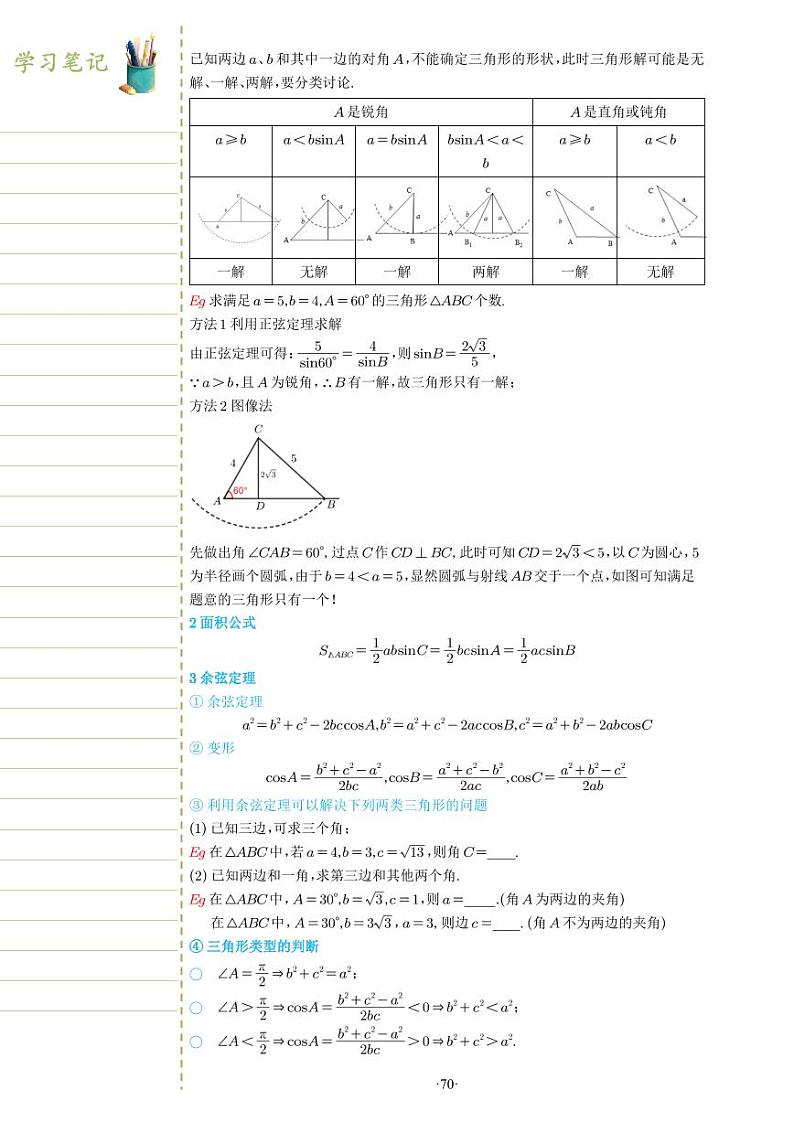 学习笔记
已知两边a、b和其中一边的对角A,不能确定三角形的形状,此时三角形解可能是无
解、一解、两解,要分类讨论.
A是锐角 A是直角或钝角
a⩾b a<bsinA a=bsinA bsinA<a<b a⩾b a<b
C A
C b a A
C b a A B
C b a a A B₁ B₂
C b a A B
C a b A
一解 无解 一解 两解 一解 无解
Eg 求满足a=5,b=4,A=60°的三角形△ABC个数.
方法1 利用正弦定理求解
由正弦定理可得: 5/sin60° = 4/sinB ,则sinB= 2√3/5 ,
∵a>b,且A为锐角,∴B有一解,故三角形只有一解;
方法2 图像法
C
4 5
2√3
60°
A D B
先做出角∠CAB=60°, 过点C作CD⊥BC, 此时可知CD=2√3<5,以C为圆心,5
为半径画个圆弧,由于b=4<a=5,显然圆弧与射线AB交于一个点,如图可知满足
题意的三角形只有一个!
2 面积公式
S△ABC= 1/2 absinC= 1/2 bcsinA= 1/2 acsinB
3 余弦定理
① 余弦定理
a²=b²+c²-2bccosA,b²=a²+c²-2accosB,c²=a²+b²-2abcosC
② 变形
cosA= (b²+c²-a²)/2bc ,cosB= (a²+c²-b²)/2ac ,cosC= (a²+b²-c²)/2ab
③ 利用余弦定理可以解决下列两类三角形的问题
(1) 已知三边,可求三个角;
Eg 在△ABC中,若a=4,b=3,c=√13,则角C=____.
(2) 已知两边和一角,求第三边和其他两个角.
Eg 在△ABC中, A=30°,b=√3,c=1,则a=____.(角A为两边的夹角)
在△ABC中, A=30°,b=3√3, a=3, 则边c=____. (角A不为两边的夹角)
④ 三角形类型的判断
○ ∠A= π/2 ⇒b²+c²=a²;
○ ∠A> π/2 ⇒cosA= (b²+c²-a²)/2bc <0⇒b²+c²<a²;
○ ∠A< π/2 ⇒cosA= (b²+c²-a²)/2bc >0⇒b²+c²>a².
·70·